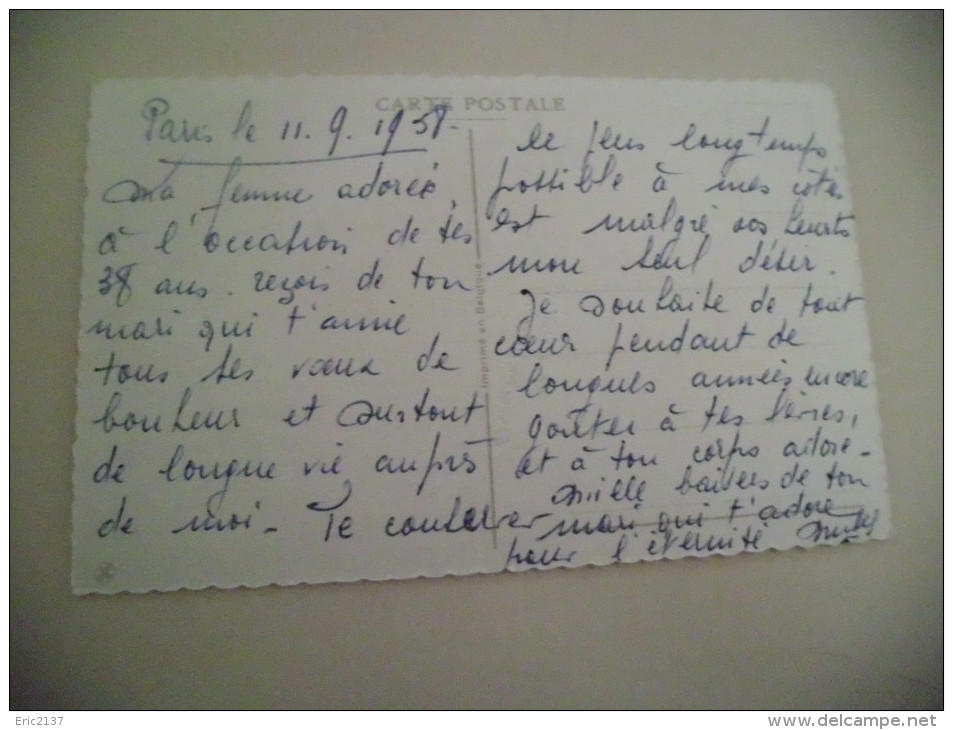 CARTE POSTALE
Paris le 11.9.1958-
Ma femme adorée,
à l'occasion de tes
38 ans. reçois de ton
mari qui t'aime
tous ses vœux de
bonheur et surtout
de longue vie auprès
de moi - Te conserver
le plus longtemps
possible à mes côtés
est malgré nos heurts
mon seul désir.
Je souhaite de tout
cœur pendant de
longues années encore
goûter à tes lèvres,
et à ton corps adoré -
Mille baisers de ton
mari qui t'adore
pour l'éternité
Imprimé en Belgique
Eric2137
www.delcampe.net